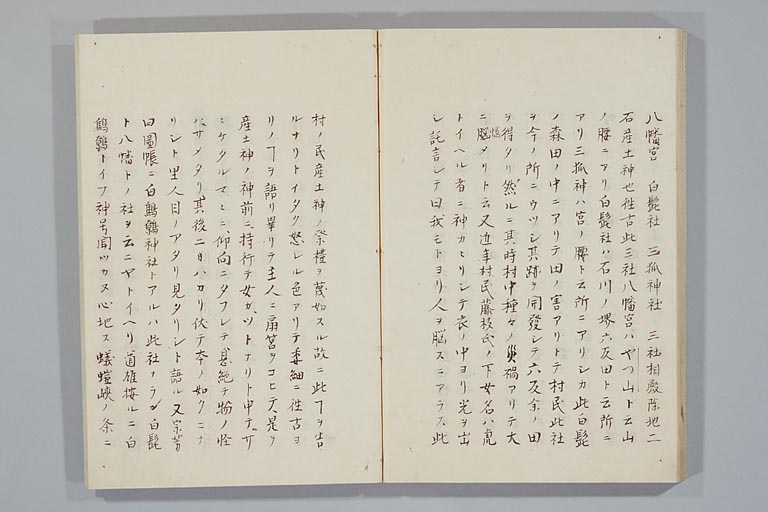 八幡宮 白髭社 三狐神社 三社相殿除地二
石産土神也往古此三社八幡宮ハやつ山ト云山
ノ腰ニアリ白髭社ハ石川ノ堺六反田ト云所ニ
アリ三狐神ハ宮ノ腰ト云所ニアリシカ此白髭
ノ森田ノ中ニアリテ田ノ害アリトテ村民此社
ヲ今ノ所ニウツシ其跡ヲ開發シテ六反余ノ田
ヲ得タリ然ルニ其時村中種々ノ災禍アリテ大
ニ脳メリト云又近年村民藤枝氏ノ下女名ハ鹿
トイヘル者ニ神カヽリシテ衣ノ中ヨリ光ヲ出
シ託言シテ曰我モトヨリ人ヲ脳スニアラス此
村ノ民産土神ノ祭禮ヲ蔑如スル故ニ此ヿヲ告
ルナリトイタク怒レル色アリテ委細ニ往古ヨ
リノヿヲ語リ畢リテ主人ニ扇筥ヲコヒテ是ヲ
産土神ノ神前ニ持行テ女カットナリト中ザ
ミケタルマヽニ仰向ニタフレテ息絶テ物ノ怪
ハサメタリ其後二日ハカリ伏テ本ノ如クニナ
リシト里人目ノアタリ見タリシト語ル又宗芳
曰圖帳ニ白鷦鷯神社トアルハ此社ナラン白髭
ト八幡トノ社ヲ云ニヤトイヘリ道雄按ルニ白
鷦鷯トイフ神号聞ツカヌ心地ス蟻螘峽ノ条ニ